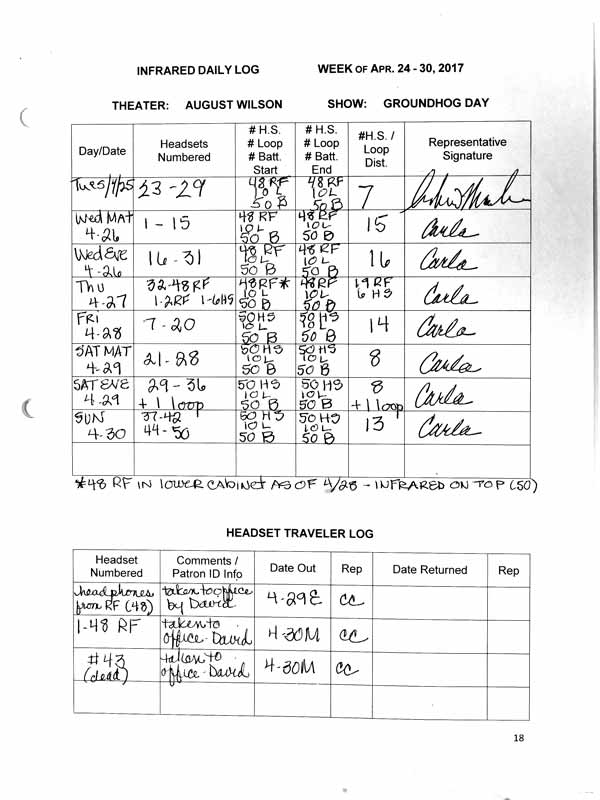 INFRARED DAILY LOG WEEK OF APR. 24 - 30, 2017
THEATER: AUGUST WILSON SHOW: GROUNDHOG DAY
Day/Date Headsets Numbered # H.S. # Loop # Batt. Start # H.S. # Loop # Batt. End #H.S. / Loop Dist. Representative Signature
Tues/4/25 23-29 48 RF 10 L 50 B 48 RF 10 L 50 B 7
Wed MAT 4-26 1-15 48 RF 10 L 50 B 48 RF 10 L 50 B 15 Carla
Wed EVE 4-26 16-31 48 RF 10 L 50 B 48 RF 10 L 50 B 16 Carla
THU 4-27 32-48 RF 1-2 RF 1-6 HS 48 RF* 10 L 50 B 48 RF 10 L 50 B 19 RF 6 HS Carla
FRI 4-28 7-20 50 HS 10 L 50 B 50 HS 10 L 50 B 14 Carla
SAT MAT 4-29 21-28 50 HS 10 L 50 B 50 HS 10 L 50 B 8 Carla
SAT EVE 4-29 29-36 +1 loop 50 HS 10 L 50 B 50 HS 10 L 50 B 8 +1 loop Carla
SUN 4-30 37-42 44-50 50 HS 10 L 50 B 50 HS 10 L 50 B 13 Carla
*48 RF IN lower CABINET AS OF 4/28 - INFRARED ON TOP (50)
HEADSET TRAVELER LOG
Headset Numbered Comments / Patron ID Info Date Out Rep Date Returned Rep
headphones from RF (48) taken to office by David 4-29E CC
1-48 RF taken to office-David 4-30M CC
#43 (dead) taken to office-David 4-30M CC
18